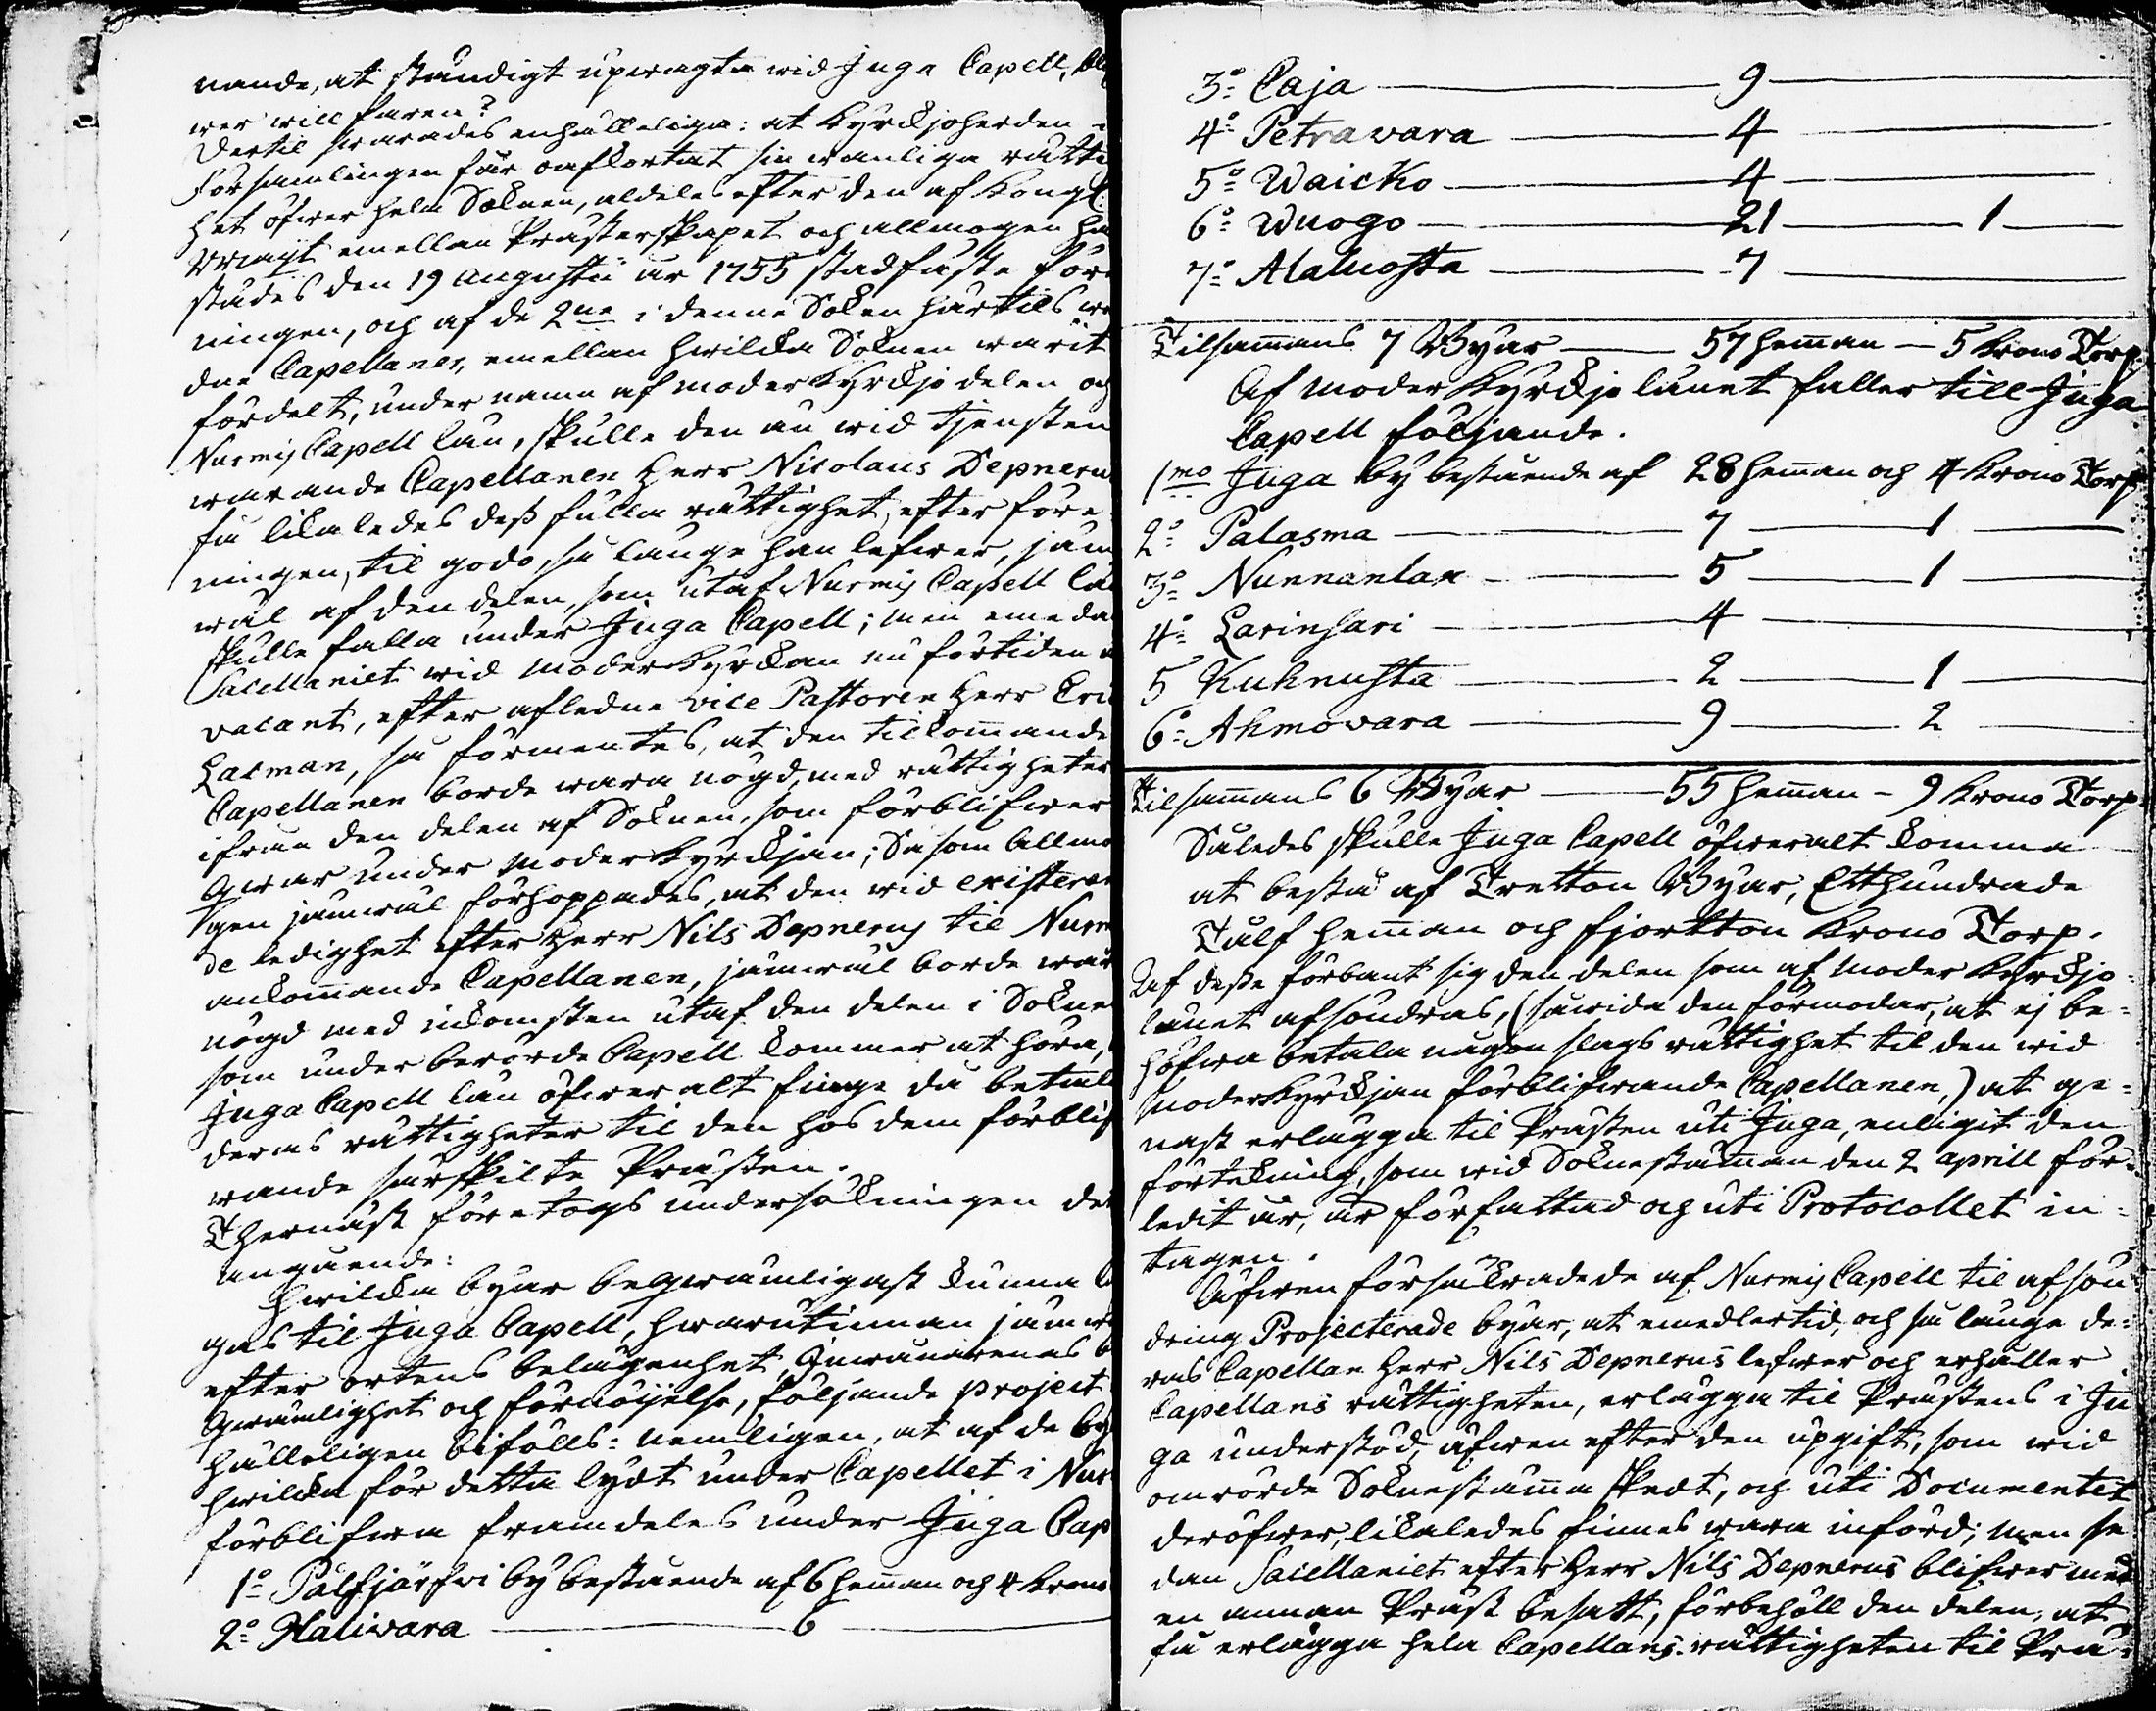 nande, at ständigt upwagta wid Juga Capell,
wer will faren?
Dertil swarades enhälleliga: at Kyrckjoherden =
Församlingen får oafkortat sin wanliga rätti
het öfwer hela Soknen, aldeles efter den af Kongl.
Wmajt emellan Prästerskapet och allmogen hä
städes den 19 Augustii år 1755 stadfäste före
ningen, och af de 2ne i denne Soken härtils wa
dne Capellaner, emellan hwilcka Soknen warit
fördelt, under namn af moder Kyrckjo delen och
Nurmis Capell lan, skulle den nu wid tjensten
warande Capellanen Herr Nicolaus Depneru
få likaledes dess fulla rättighet, efter före-
ningen, til godo, så länge han lefwer, jäm
wäl af den delen, som utaf Nurmis Capell lä
skulle falla under Juga Capell; men emeda
Sacellaniet wid moder Kyrckan nu förtiden ä
vacant, efter afledne vice Pastoren Herr Eric
Lacman, så förmentes, at den tilkommande
Capellanen borde wara nögd, med rättigheter
ifrån den delen af Soknen, som förblifwer
qwar under moder Kyrckjan; Så som Allmo
gen jämwäl förhoppades, at den wid existeran
de ledighet efter Herr Nils Depnerus til Nurm
ankommande Capellanen, jämwäl borde war
nögd med inkomsten utaf den delen i Sokne
som under berörde Capell kommer at höra,
Juga Capell lan öfwer alt finge då betal
deras rättigheter til den hos dem förblif
wande särskilte Prästen.
Thernäst företogs undersökningen der
angående:
Hwilcka byar beqwämligast kunna l
gas til Juga Capell, hwarutinnan jämw
efter ortens belägenhet, Inwånarenas b
qwämlighet och förnöijelse, följande project
hälleligen bifölls: nemligen, at af de by
hwilcka för detta lydt under Capellet i Nur
förblifwa framdeles under Juga Cap
1o Palfjärfwi by bestående af 6 heman och 4 Krono
2o Haliwara — 6 —
3o Caja — 9 —
4o Petravara — 4 —
5o Waicko — 4 —
6o Wuogo — 21 — 1 —
7o Alaluosta — 7 —
Tilsamans 7 Byar — 57 heman — 5 Krono Torp.
Af moder Kyrckjo länet faller till Juga
Capell följande.
1mo Juga by bestående af 28 heman och 4 Krono Torp
2o Palasma — 7 — 1 —
3o Nunnanlax — 5 — 1 —
4o Larinsari — 4 —
5 Kuhnusta — 2 — 1 —
6o Ahmovara — 9 — 2 —
Tilsamans 6 Byar — 55 heman — 9 Krono Torp
Således skulle Juga Capell öfweralt komma
at bestå af Tretton Byar, Etthundrade
Tolf heman och fjortton Krono Torp.
Af desse förbant sig den delen som af moder Kyrckjo-
länet afsöndras, (såwida den förmodar, at ej be-
höfwa betala någon slags rättighet til den wid
moder Kyrckjan förblifwande Capellanen,) at ge-
nast erlägga til Prästen uti Juga, enligit den
förtekning, som wid Soknestäman den 2 aprill för-
ledit år, är författad och uti Protocollet in-
tagen.
Äfwen försäkrade de af Nurmis Capell til afsön
dring Projecterade byar, at emedlertid, och så länge de-
ras Capellan Herr Nils Depnerus lefwer och erhåller
Capellans rättigheten, erlägga til Prästens i Ju
ga understöd, äfwen efter den upgift, som wid
omrörde Soknestäma skedt, och uti Documentet
deröfwer, likaledes finnes wara införd; men se
dan Sacellaniet efter Herr Nils Depnerus blifwer med
en annan Präst besatt, förbehöll den delen, at
få erlägga hela Capellans rättigheten til Prä-